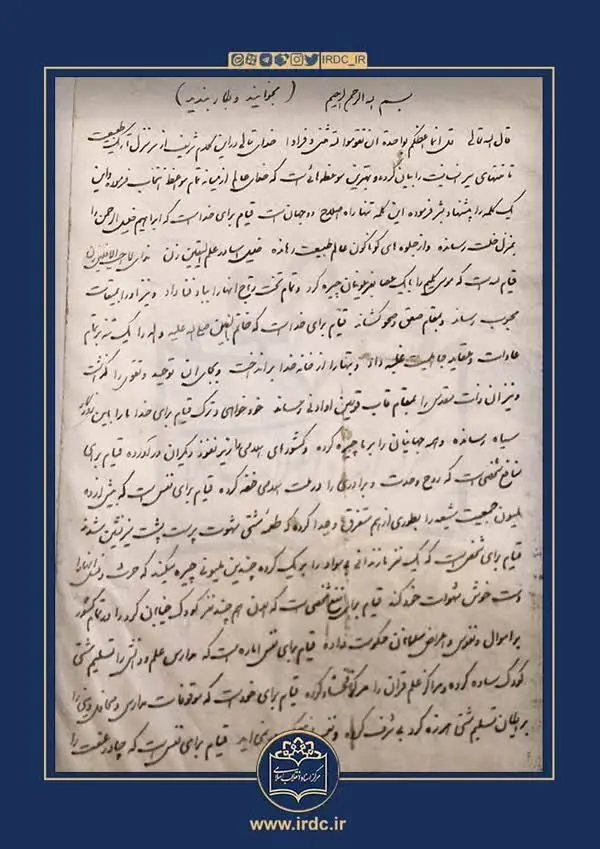 IRDC_IR
بسم الله الرحمن الرحیم (بخوانید و بکار بندید)
قال الله تعالی قل انما اعظکم بواحدة ان تقوموا لله مثنی و فرادا خدای تعالی در این کلام شریف از سر منزل تاریک طبیعت
تا منتهای سیر انسانیت را بیان کرده و بهترین موعظه‌هائی است که خدای عالم از میانه تمام مواعظ انتخاب فرموده و این
یک کلمه را پیشنهاد بشر فرموده این کلمه تنها راه اصلاح دو جهان است قیام برای خدا است که ابراهیم خلیل الرحمن را
بمنزل خلت رسانده و از جلوه‌های گوناگون عالم طبیعت رهانده خلیل آسا در علم الیقین زن ندای لا احب الافلین زن
قیام لله است که موسی کلیم را با یک عصا بفرعونیان چیره کرد و تمام تخت و تاج آنها را بباد فنا داد و نیز او را بمیقات
محبوب رساند و بمقام صعق و صحو کشاند قیام برای خدا است که خاتم النبیین صلی الله علیه و اله را یک تنه بر تمام
عادات و عقاید جاهلیت غلبه داد و بتها را از خانه خدا برانداخت و بجای آن توحید و تقوی را گذاشت
و نیز آن ذات مقدس را بمقام قاب قوسین او ادنی رساند خودخواهی و ترک قیام برای خدا ما را باین روزگار
سیاه رسانده و همه جهانیان را بر ما چیره کرده و کشورهای اسلامی را زیر نفوذ دیگران درآورده قیام برای
منافع شخصی است که روح وحدت و برادری را در ملت اسلامی خفه کرده قیام برای نفس است که بیش از ده
ملیون جمعیت شیعه را بطوری از هم متفرق و جدا کرده که طعمه مشتی شهوت پرست پشت میز نشین شدند
قیام برای شخص است که یک نفر مازندرانی بیسواد را بر یک گروه چندین ملیونی چیره میکند که حرث و نسل آنها را
دستخوش شهوات خود کند قیام برای نفع شخصی است که الان هم چند نفر کودک خیابان گرد را در تمام کشور
بر اموال و نفوس و اعراض مسلمانان حکومت داده قیام برای نفس اماره است که مدارس علم و دانش را تسلیم مشتی
کودک ساده کرده و مراکز علم قران را مرکز فحشاء کرده قیام برای خود است که موقوفات مدارس و محافل دینی را
برایگان تسلیم مشتی هرزه گرد بی شرف کرده و نفس از هیچکس در نمی‌آید قیام برای نفس است که چادر عفت را
مرکز اسناد انقلاب اسلامی
www.irdc.ir